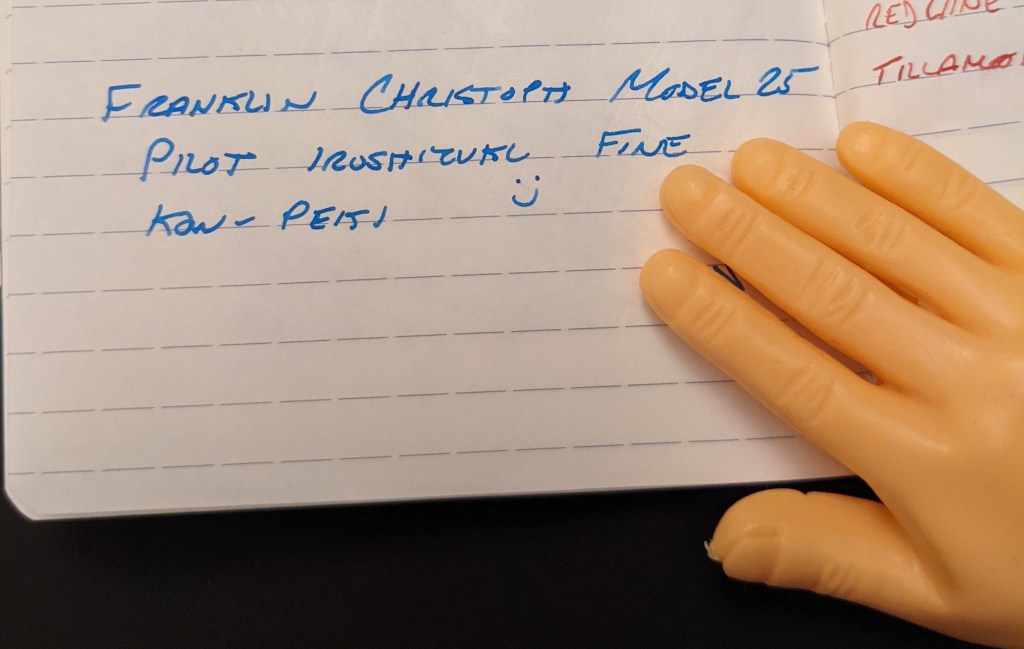 FRANKLIN CHRISTOPH MODEL 25
PILOT IROSHIZUKU FINE
KON-PEKI
RED LINE